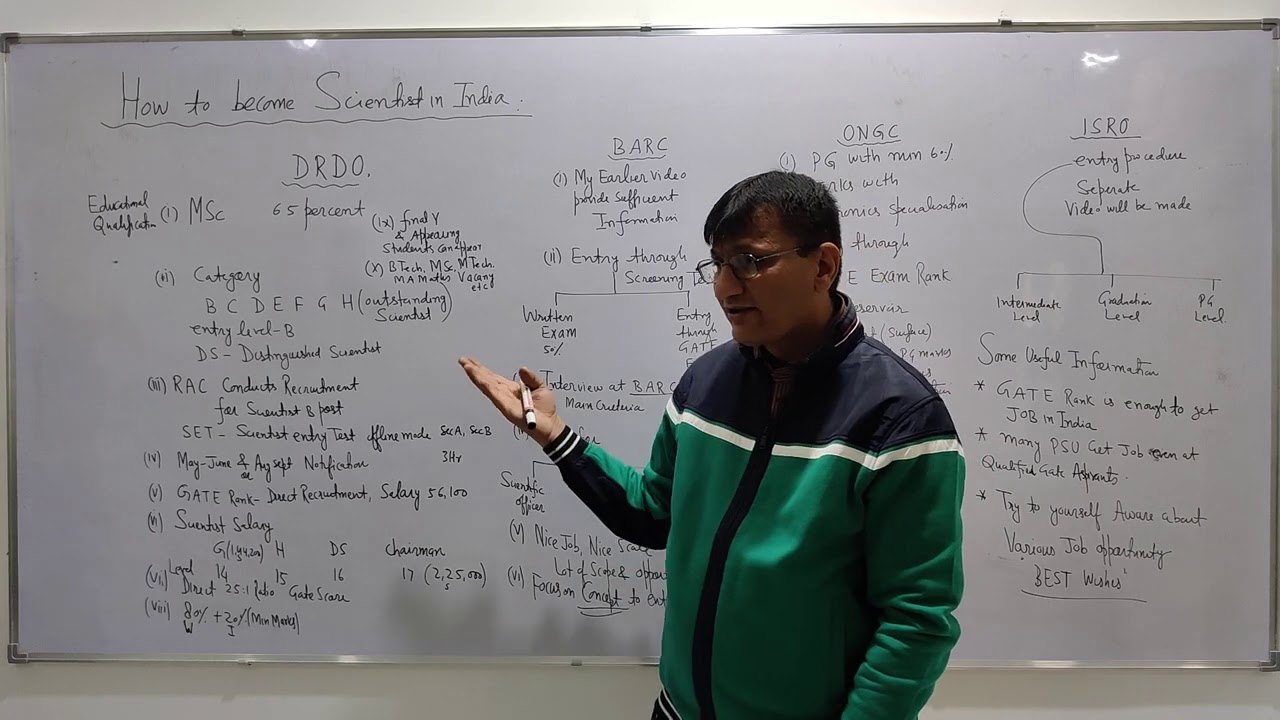 How to become Scientist in India :
DRDO.
Educational
Qualification
(i) MSc 65 percent
(ii) Category
B C D E F G H (outstanding
Scientist)
entry level-B
DS - Distinguished Scientist
(iii) RAC Conducts Recruitment
for Scientist B post
SET - Scientist entry Test offline mode SecA, SecB
3Hr
(iv) May-June & Aug Sept Notification
or
(v) GATE Rank- Direct Recruitment, Salary 56,100
(vi) Scientist Salary
H DS chairman
Level 14 15 16 17 (2,25,000)
(vii) Direct 25:1 Ratio Gate Score
(viii) 80% + 20% (Min Marks)
W I
(ix) final Y
& Appearing
Students can appear
(x) BTech, MSc, MTech.
MA Maths Vacany
etc
BARC
(i) My Earlier Video
provide Suffecent
Information
(ii) Entry through
Screening
Written
Exam
50%
Entry
through
GATE
Interview at BARC
Main Criteria
Scientific
officer
(v) Nice Job, Nice Scale
Lot of Scope &
(vi) Focus on Concept to
ONGC
(i) PG with min 60%
with
specialisation
through
Exam Rank
(Surface)
PG marks
ISRO
entry procedure
Seperate
Video will be made
Intermediate
Level
Graduation
Level
PG
Level
Some Useful Information
* GATE Rank is enough to get
JOB in India
* many PSU Get Job even at
Qualified Gate Aspirants.
* Try to yourself Aware about
Various Job oppertunity
'BEST Wishes'